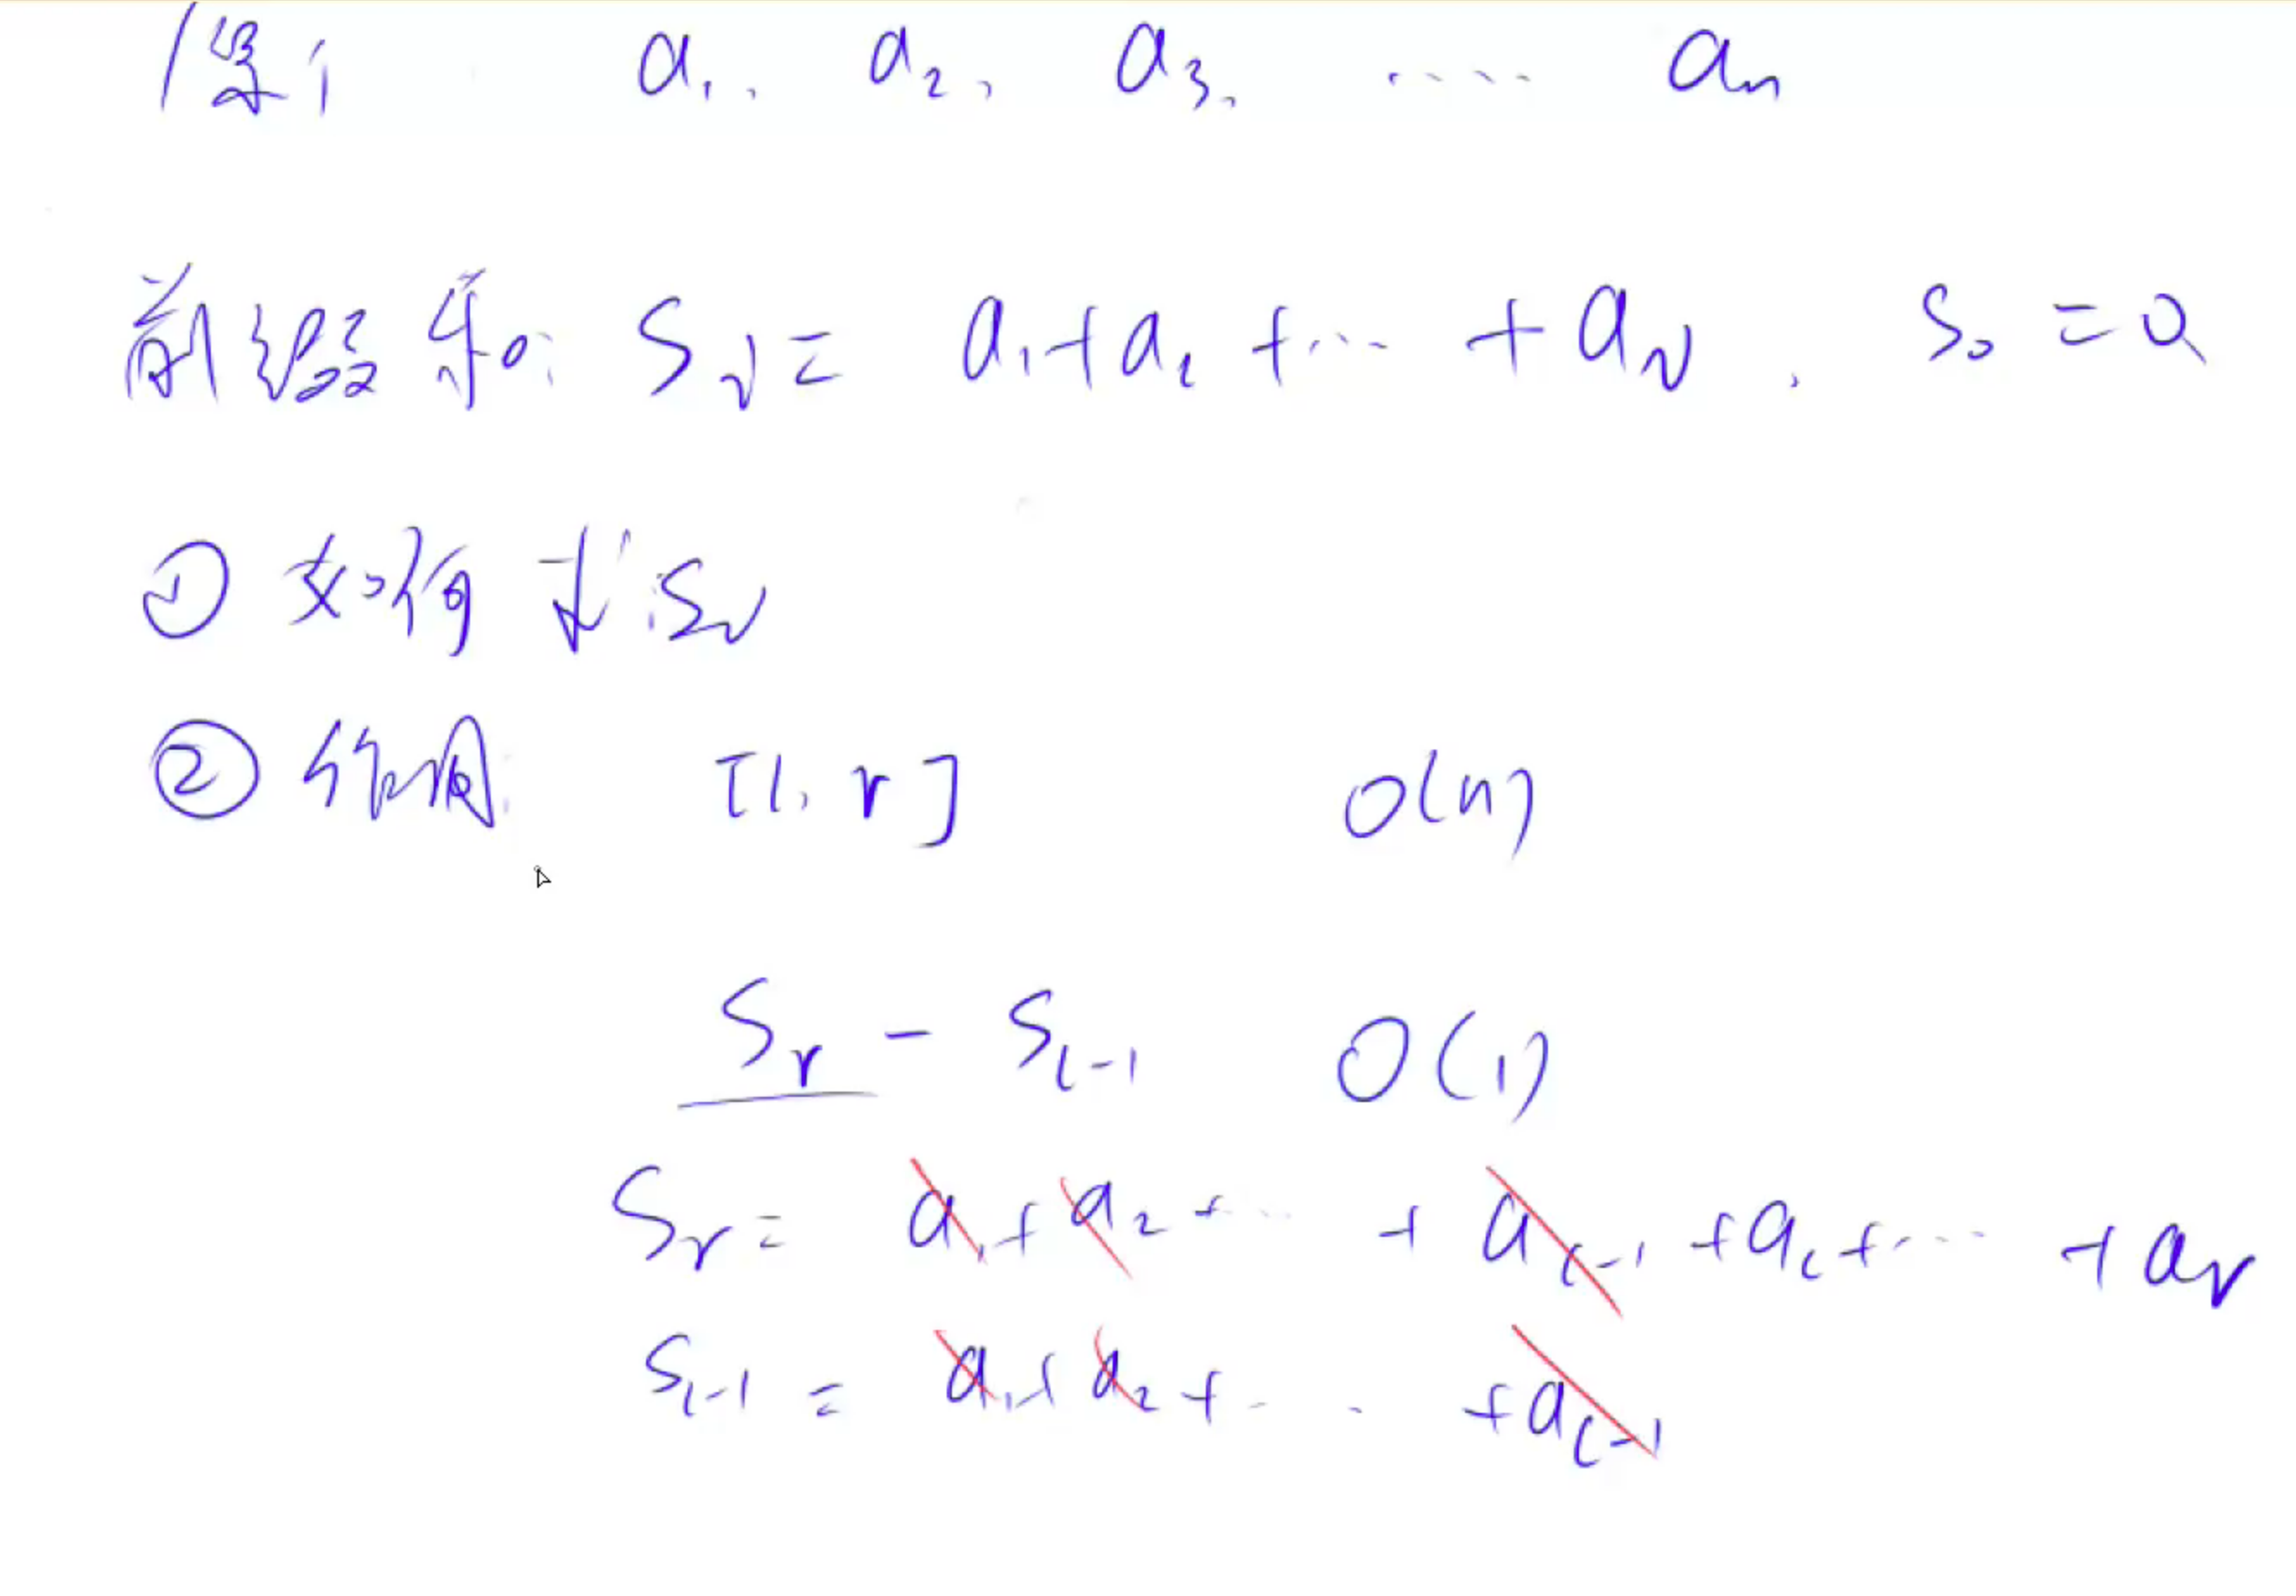 a₁, a₂, a₃, ..... aₙ
前缀和: Sᵢ = a₁+a₂ +... + aᵢ . S₀ = 0
① 如何求 Sᵢ
② 作用: [l, r] O(n)
Sᵣ - Sₗ₋₁ O(1)
Sᵣ = a₁+a₂+... + aₗ₋₁ + aₗ + .... + aᵣ
Sₗ₋₁ = a₁+a₂+... + aₗ₋₁